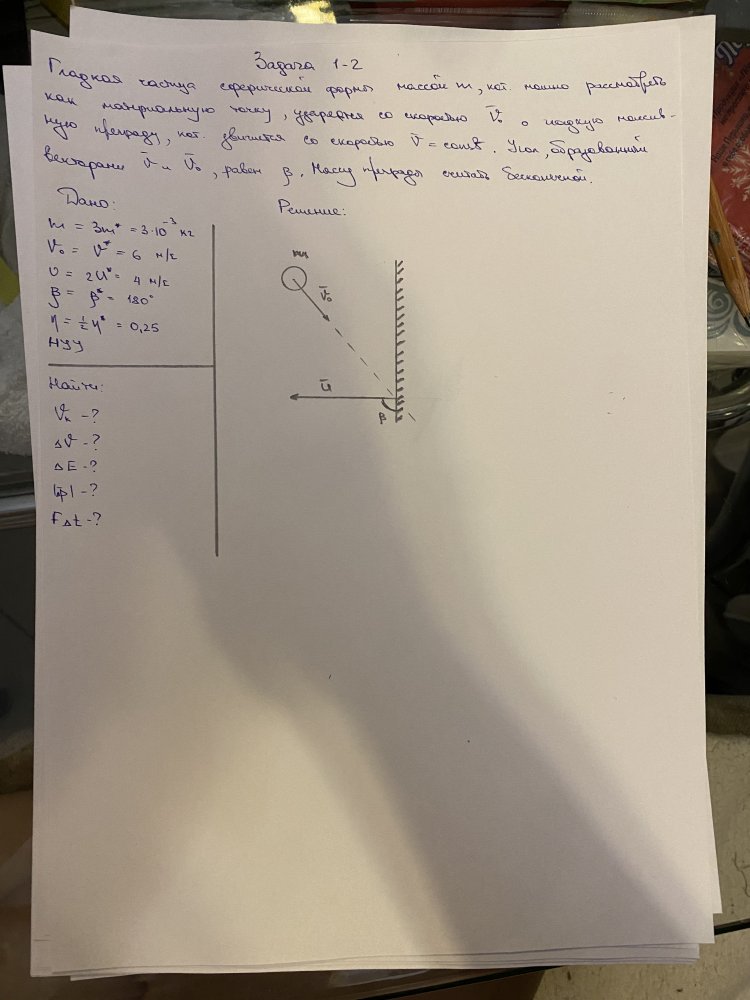 Задача 1-2
Гладкая частица сферической формы массой m, кот. можно рассмотреть
как материальную точку, ударяется со скоростью V̄₀ о гладкую массив-
ную преграду, кот. движется со скоростью V̄ = const. Угол, образованный
векторами V̄ и V̄₀, равен β. Массу преграды считать бесконечной.
Дано:
m = 3m* = 3·10⁻³ кг
V₀ = V* = 6 м/с
U = 2U* = 4 м/с
β = β* = 180°
η = ½η* = 0,25
НУУ
Найти:
Vк -?
ΔV -?
ΔE -?
|p̄| -?
FΔt -?
Решение:
m
V̄₀
ū
β